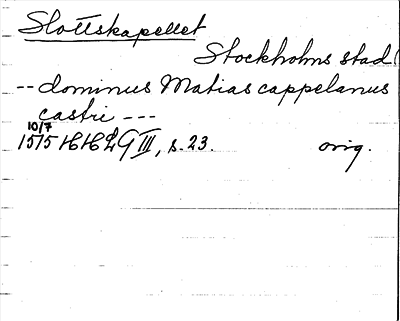 Slottskapellet
Stockholms stad
-- dominus Matias cappelanus
castri ---
10/7
1515 HH£G III, s. 23. orig.